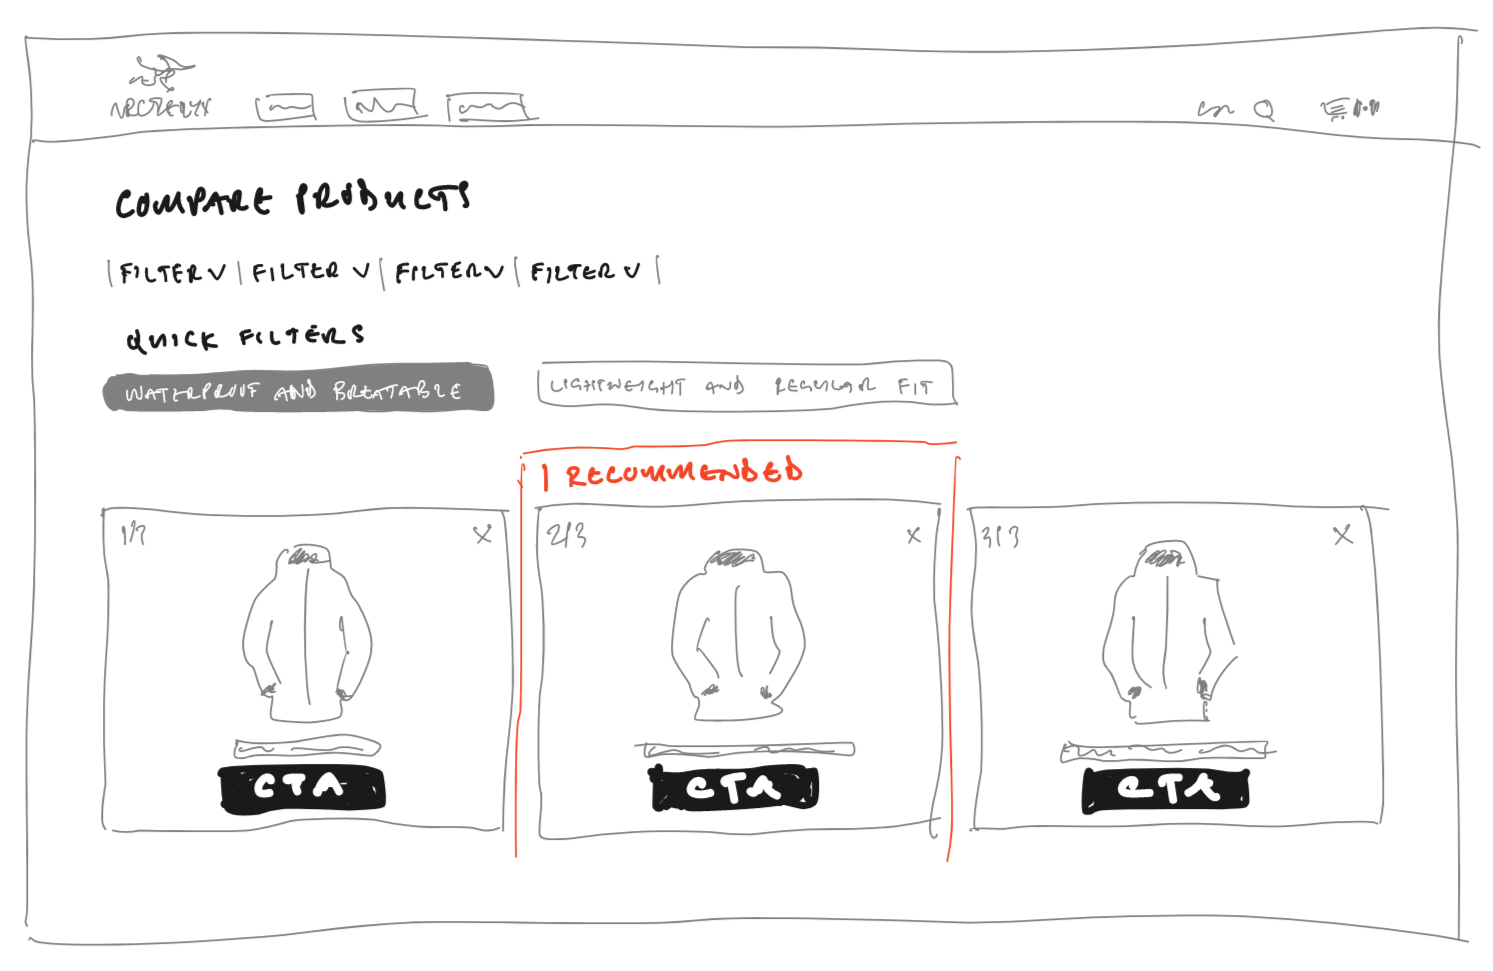 ARCTERYX
COMPARE PRODUCTS
FILTER FILTER FILTER FILTER
QUICK FILTERS
WATERPROOF AND BREATABLE
LIGHTWEIGHT AND REGULAR FIT
RECOMMENDED
1/3 X
2/3 X
3/3 X
CTA
CTA
CTA